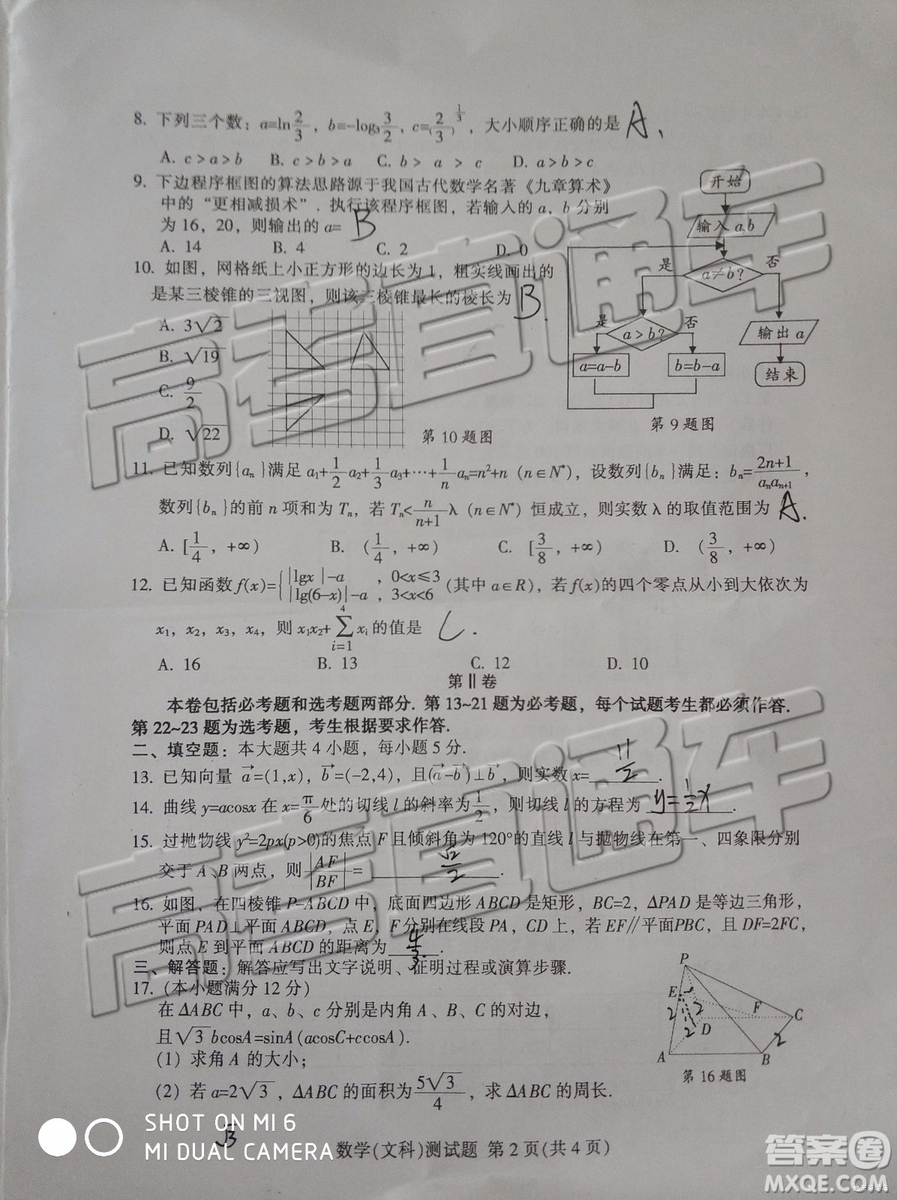 8. 下列三个数：a=ln2/3，b=-log₃3/2，c=(2/3)^(1/3)，大小顺序正确的是 A、
A. c>a>b B. c>b>a C. b>a>c D. a>b>c
9. 下边程序框图的算法思路源于我国古代数学名著《九章算术》
中的“更相减损术”.执行该程序框图，若输入的 a，b 分别
为 16，20，则输出的 a= B
A. 14 B. 4 C. 2 D. 0
开始
输入 a,b
是 a≠b? 否
是 a>b? 否
输出 a
a=a-b b=b-a
结束
第 9 题图
10. 如图，网格纸上小正方形的边长为 1，粗实线画出的
是某三棱锥的三视图，则该三棱锥最长的棱长为 B.
A. 3√2
B. √19
C. 9/2
D. √22
第 10 题图
11. 已知数列{aₙ}满足 a₁+1/2a₂+1/3a₃+…+1/n aₙ=n²+n (n∈N*)，设数列{bₙ}满足：bₙ=2n+1/aₙaₙ₊₁，
数列{bₙ}的前 n 项和为 Tₙ，若 Tₙ<n/n+1 λ (n∈N*) 恒成立，则实数 λ 的取值范围为 A.
A. [1/4，+∞) B. (1/4，+∞) C. [3/8，+∞) D. (3/8，+∞)
12. 已知函数 f(x)={|lgx|-a ，0<x≤3
|lg(6-x)|-a，3<x<6 (其中 a∈R)，若 f(x)的四个零点从小到大依次为
x₁，x₂，x₃，x₄，则 x₁x₂+∑(i=1→4)xᵢ 的值是 C.
A. 16 B. 13 C. 12 D. 10
第Ⅱ卷
本卷包括必考题和选考题两部分.第 13~21 题为必考题，每个试题考生都必须作答.
第 22~23 题为选考题，考生根据要求作答.
二、填空题：本大题共 4 小题，每小题 5 分.
13. 已知向量 a→=(1,x)，b→=(-2,4)，且(a→-b→)⊥b→，则实数 x= 11/2 .
14. 曲线 y=acosx 在 x=π/6 处的切线 l 的斜率为1/2，则切线 l 的方程为 y=1/2x .
15. 过抛物线 y²=2px(p>0)的焦点 F 且倾斜角为 120°的直线 l 与抛物线在第一、四象限分别
交于 A、B 两点，则 |AF|/|BF| = .
16. 如图，在四棱锥 P=ABCD 中，底面四边形 ABCD 是矩形，BC=2，ΔPAD 是等边三角形，
平面 PAD⊥平面 ABCD，点 E、F 分别在线段 PA，CD 上，若 EF∥平面PBC，且 DF=2FC，
则点 E 到平面 ABCD 的距离为 .
三、解答题：解答应写出文字说明、证明过程或演算步骤.
17. (本小题满分 12 分)
在 ΔABC 中，a、b、c 分别是内角 A、B、C 的对边，
且√3 bcosA=sinA(acosC+ccosA).
(1) 求角 A 的大小；
(2) 若 a=2√3，ΔABC 的面积为5√3/4，求 ΔABC 的周长.
P
E
F
C
2
D
2
2
A
B
第 16 题图
数学(文科)测试题 第 2 页(共 4 页)
SHOT ON MI 6
MI DUAL CAMERA
高考直通车
高考直通车
答案圈
MXQE.COM